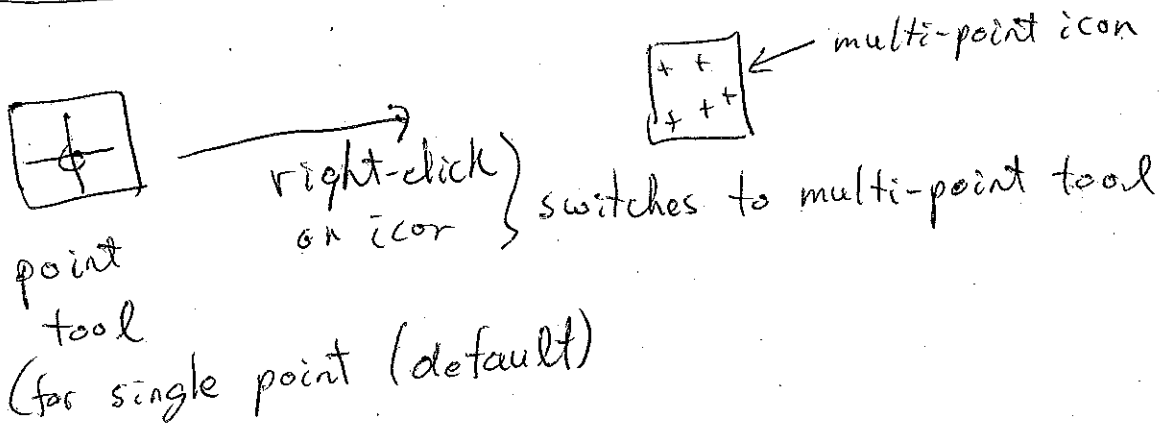 multi-point icon
right-click } switches to multi-point tool
on icon
point
tool
(for single point (default)